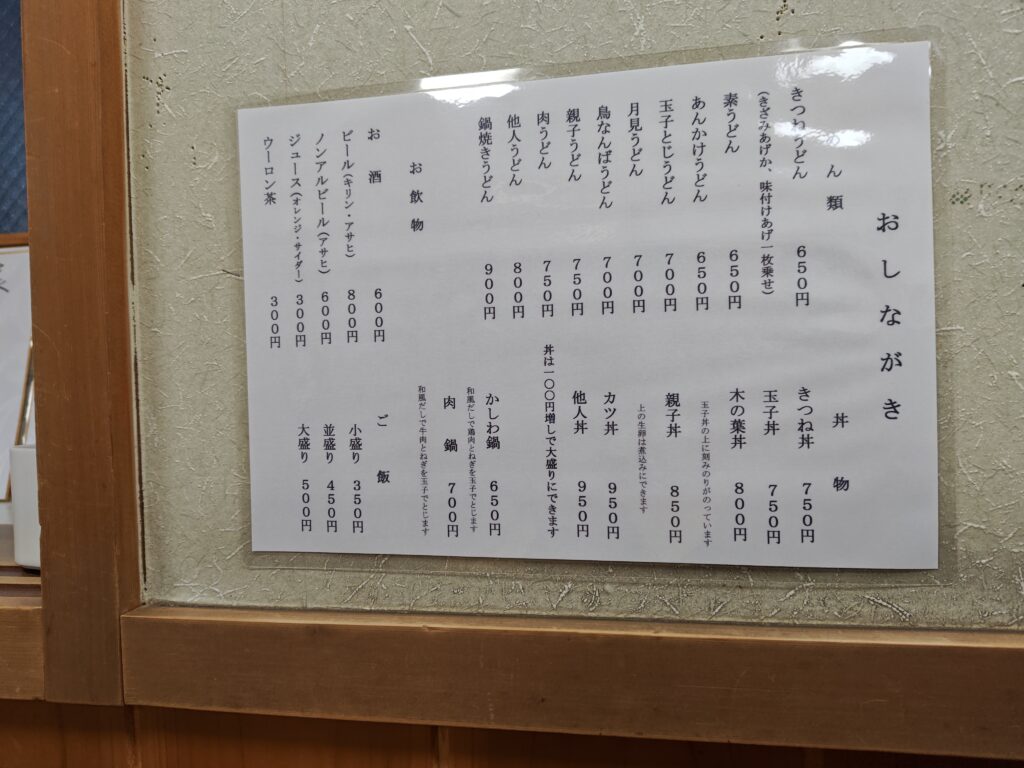 おしながき
めん類
きつねうどん 650円
(きざみあげか、味付けあげ一枚乗せ)
素うどん 650円
あんかけうどん 650円
玉子とじうどん 700円
月見うどん 700円
鳥なんばうどん 700円
親子うどん 750円
肉うどん 750円
他人うどん 800円
鍋焼きうどん 900円
丼物
きつね丼 750円
玉子丼 750円
木の葉丼 800円
玉子丼の上に刻みのりがのっています
親子丼 850円
上の生卵は煮込みにできます
カツ丼 950円
他人丼 950円
丼は一〇〇円増しで大盛りにできます
かしわ鍋 650円
和風だしで鶏肉とねぎを玉子でとじます
肉鍋 700円
和風だしで牛肉とねぎを玉子でとじます
お飲物
お酒 600円
ビール(キリン・アサヒ) 800円
ノンアルビール(アサヒ) 600円
ジュース(オレンジ・サイダー) 300円
ウーロン茶 300円
ご飯
小盛り 350円
並盛り 450円
大盛り 500円